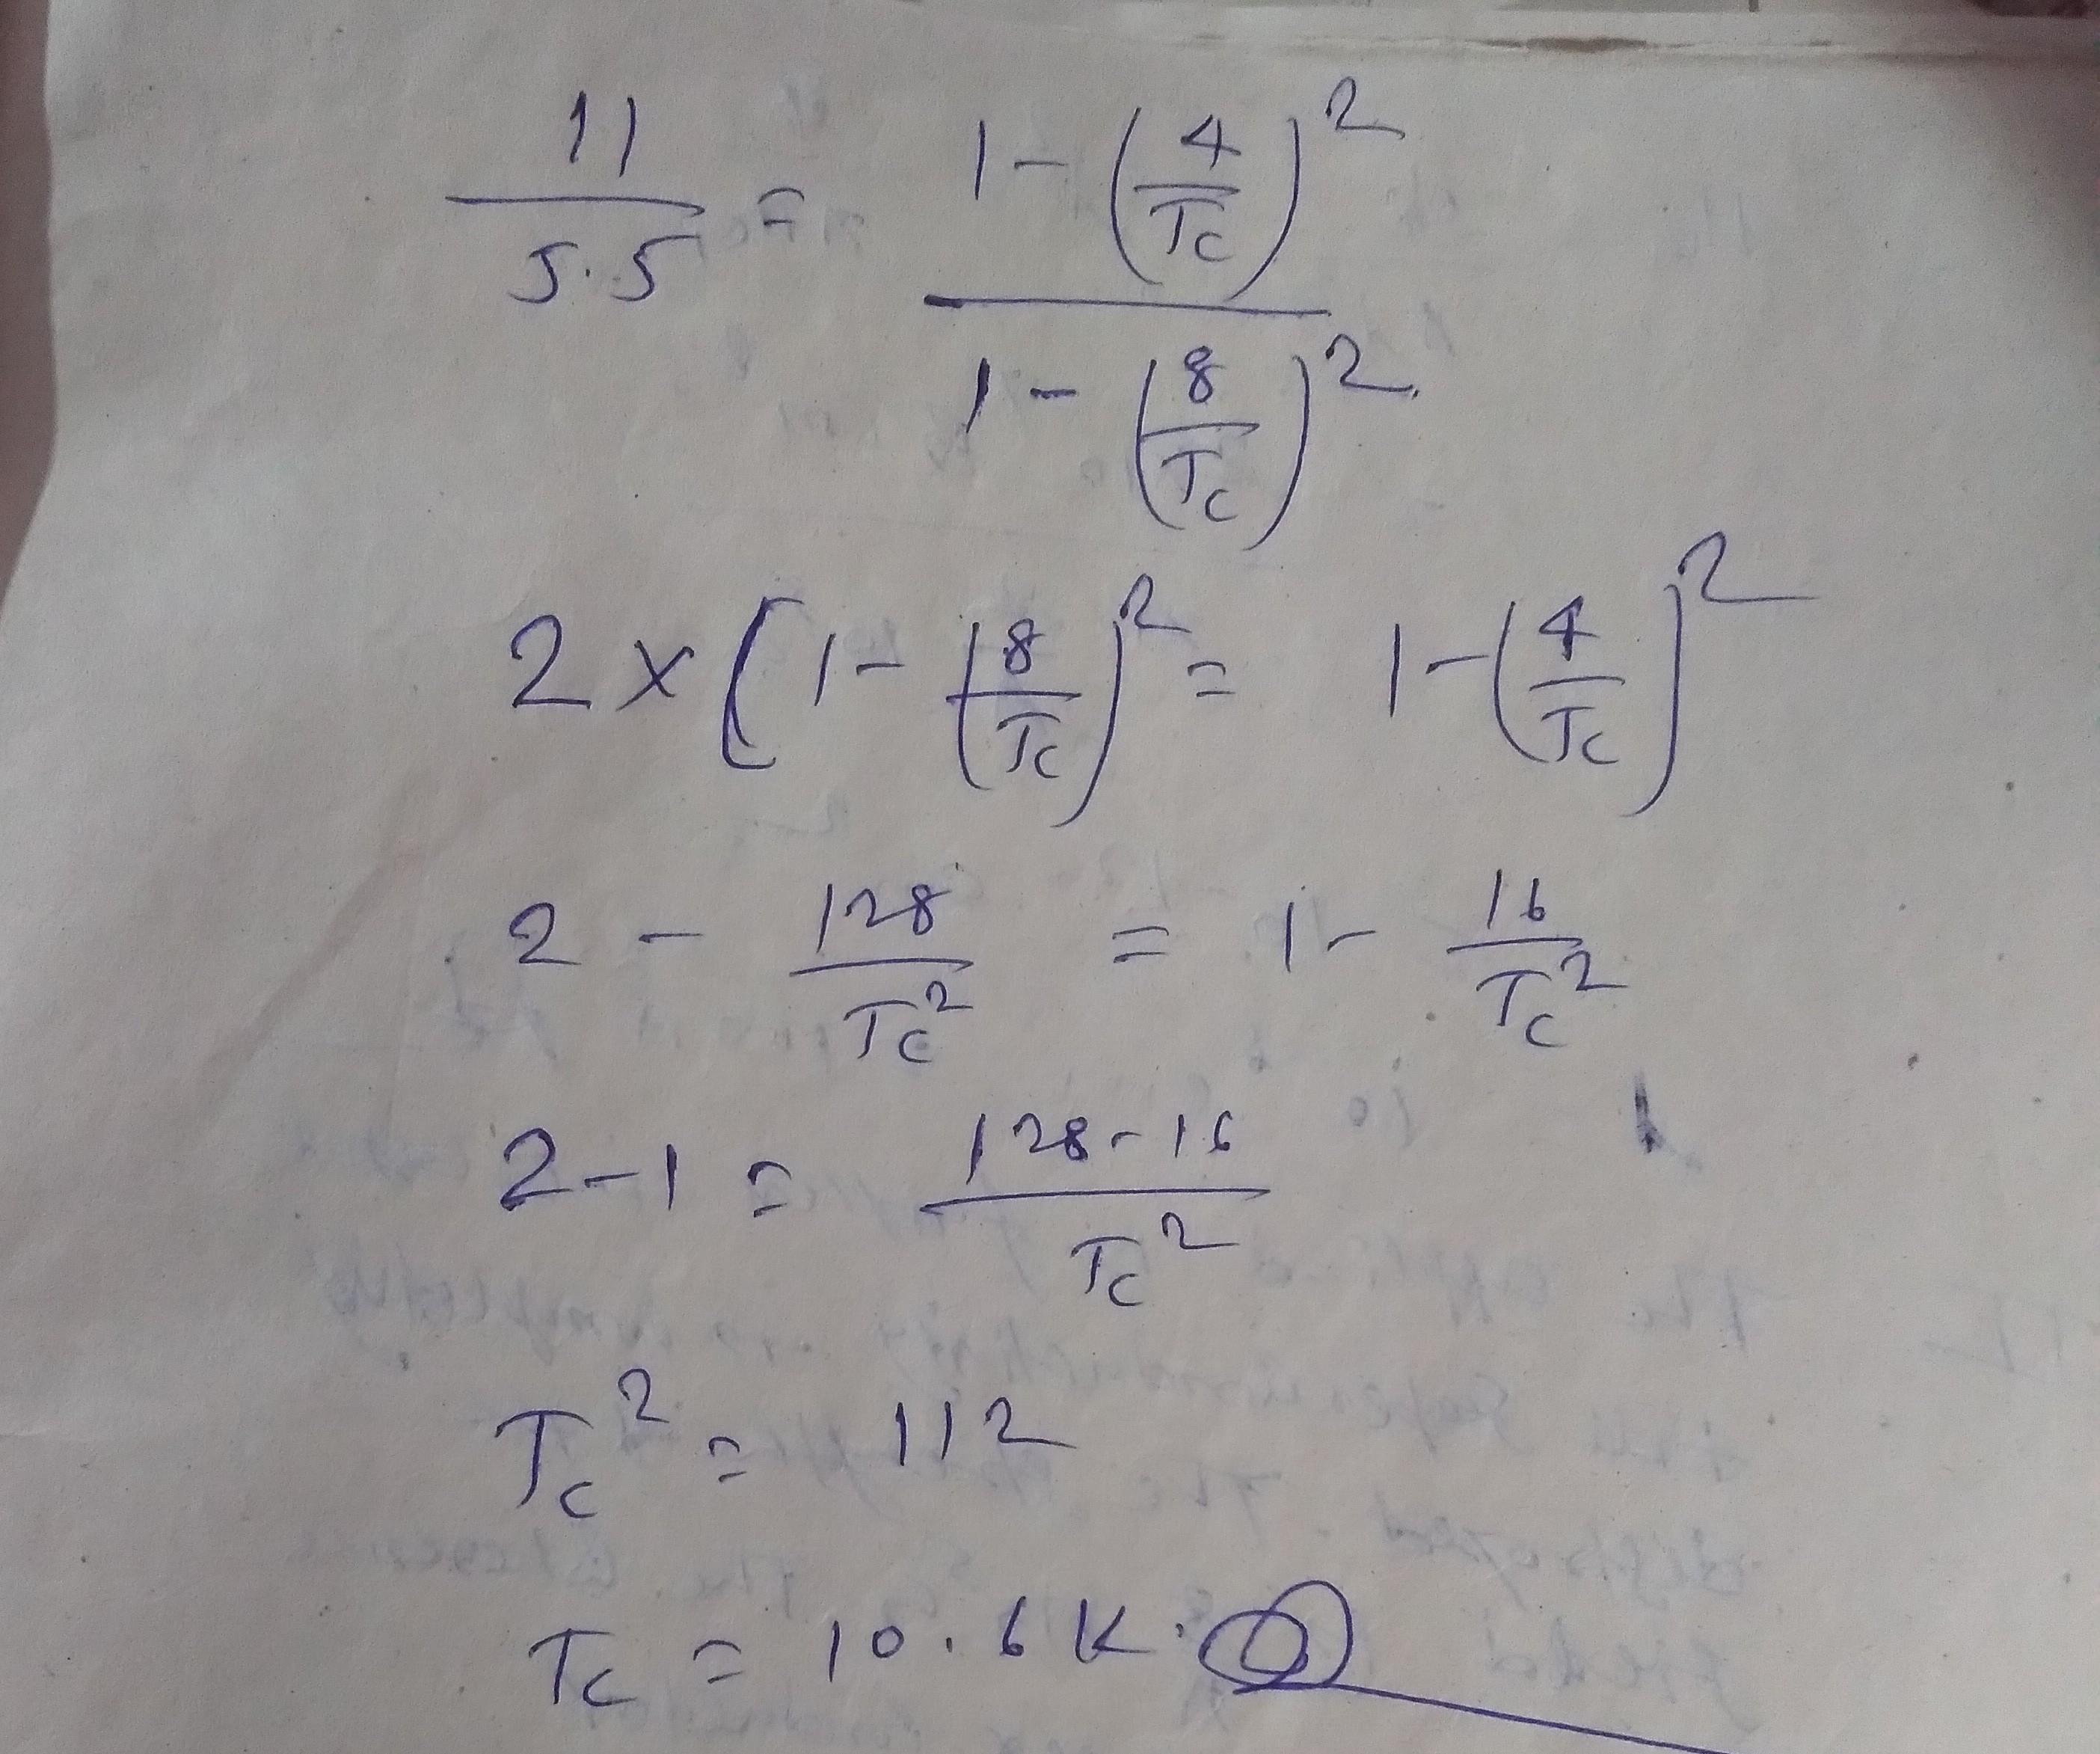 11/5.5 = (1-(4/Tc)²)/(1-(8/Tc)²)
2 × [1-(8/Tc)² = 1-(4/Tc)²
2 - 128/Tc² = 1- 16/Tc²
2-1 = (128-16)/Tc²
Tc² = 112
Tc = 10.6 K.